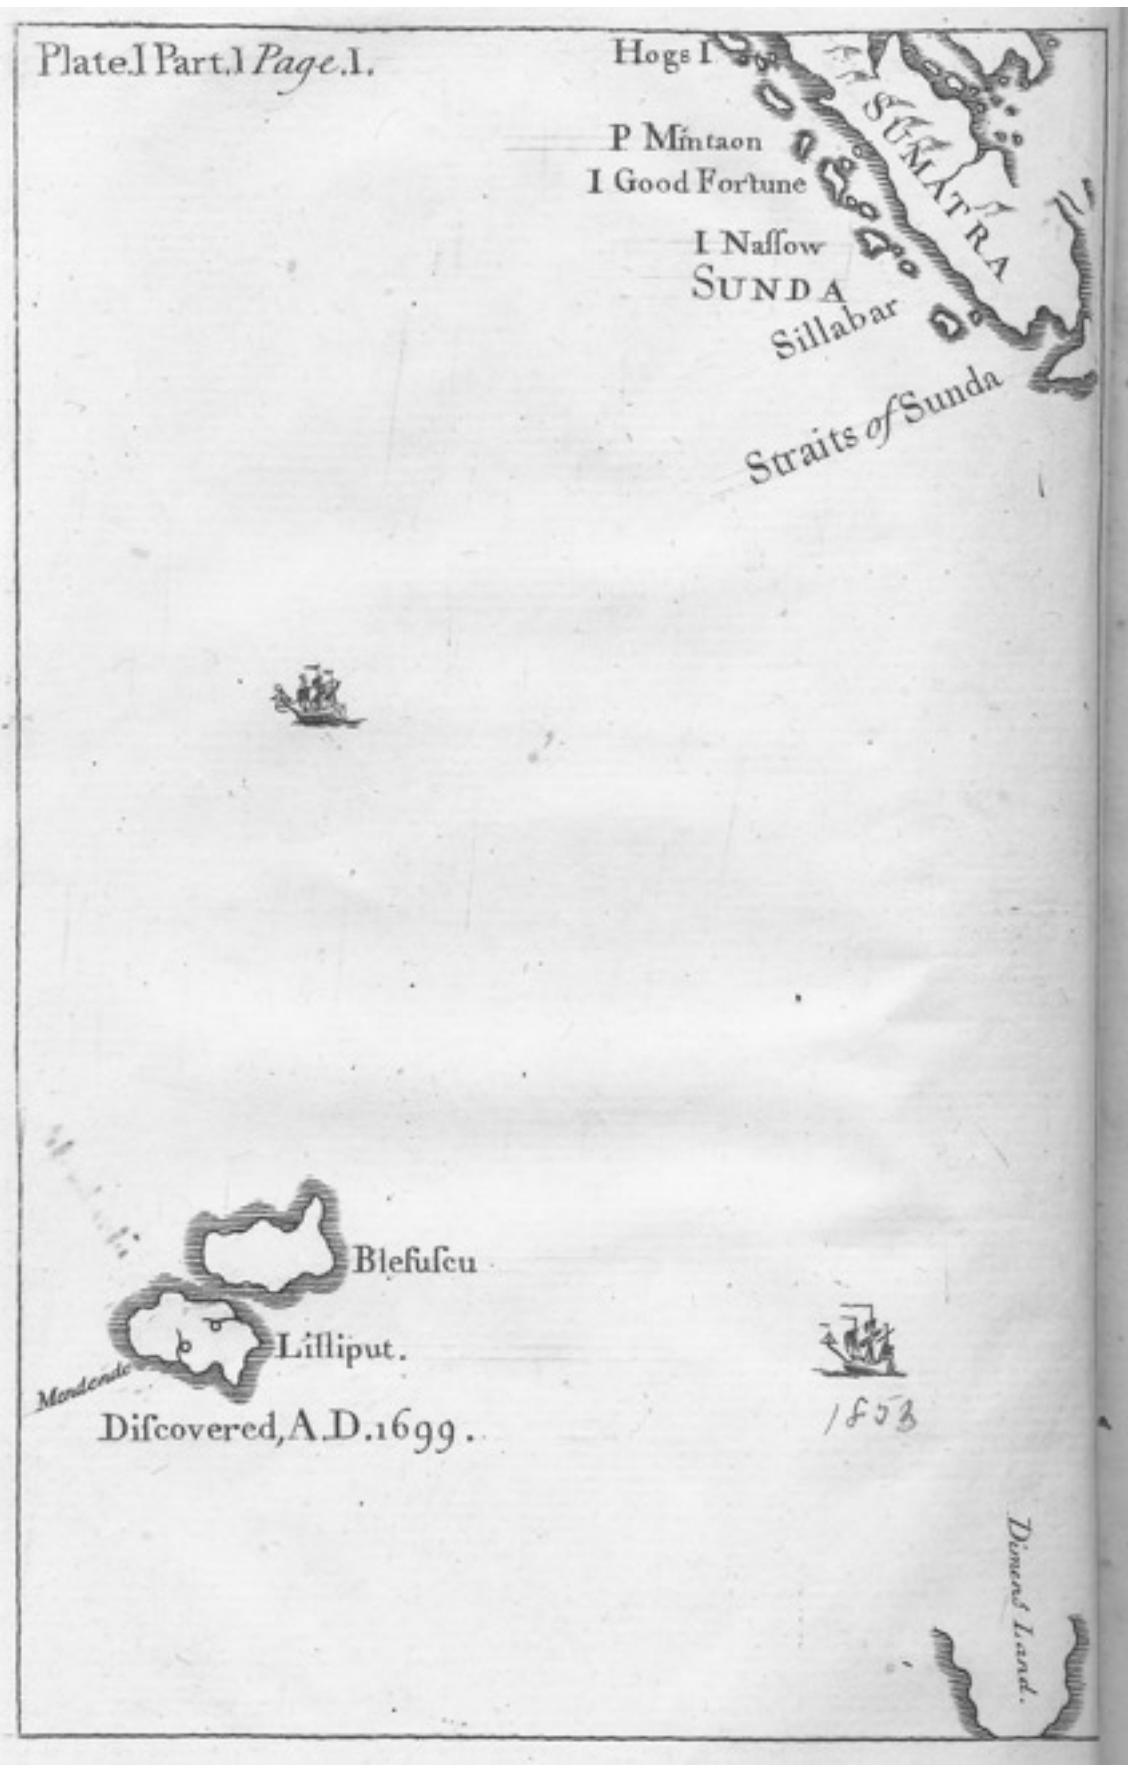 Plate.I Part.I Page.I.
Hogs I
P Mintaon
I Good Fortune
I Naſſow
SUNDA
Sillabar
Straits of Sunda
SUMATRA
Blefuſcu
Lilliput.
Mendendo
Diſcovered, A.D. 1699.
1853
Dimens Land.